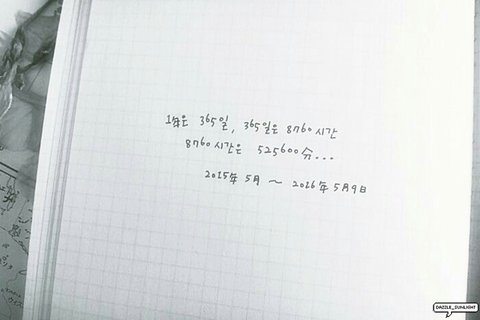 1年은 365일, 365일은 8760시간
8760시간은 525600슈...
2015年 5月 ~ 2016年 5月9日
DAZZLE_SUNLIGHT